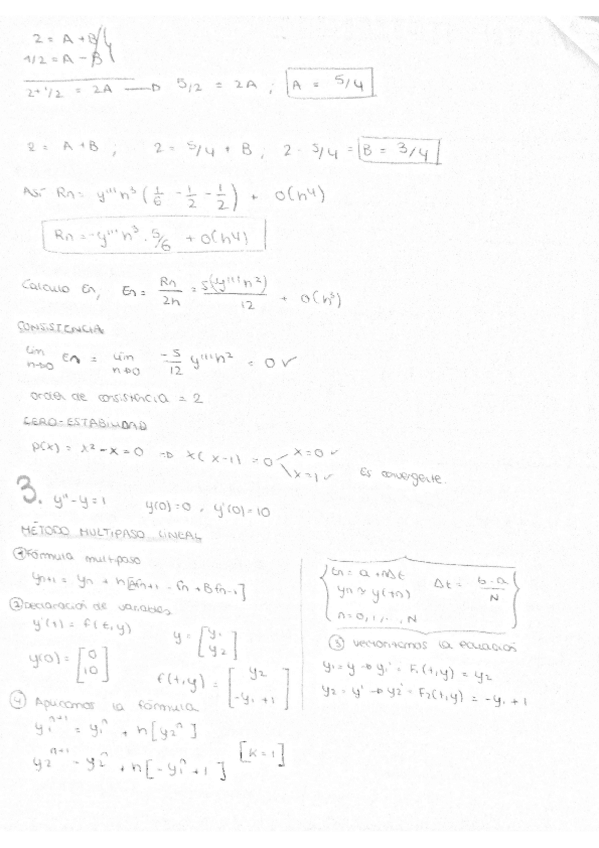 2 = A + B
1/2 = A - B
2+1/2 = 2A → 5/2 = 2A ; A = 5/4
2 = A + B ; 2 = 5/4 + B , 2 - 5/4 = B = 3/4
Así Rn = y''' h³ (1/6 - 1/2 - 1/2) + O(h⁴)
Rn = -y''' h³ · 5/6 + O(h⁴)
Calculo En, En = Rn/2h = 5(-y''' h²)/12 + O(h³)
CONSISTENCIA
lim h→0 En = lim h→0 -5/12 y''' h² = 0 ✓
orden de consistencia = 2
CERO-ESTABILIDAD
p(x) = x² - x = 0 ⇒ x(x-1) = 0 x=0 ✓
x=1 ✓ Es convergente.
3. y'' - y = 1 y(0) = 0 , y'(0) = 10
MÉTODO MULTIPASO LINEAL
① Fórmula multipaso
yn+1 = yn + h[Afn+1 - fn + Bfn-1]
② Declaración de variables
y'(t) = f(t,y) y = [y1 y2]
y(0) = [0 10] f(t,y) = [y2 -y1 + 1]
tn = a + nΔt
yn ≈ y(tn) Δt = b-a/N
n = 0, 1, ..., N
③ Vectorizamos la ecuación
y1 = y → y1' = F1(t,y) = y2
y2 = y' → y2' = F2(t,y) = -y1 + 1
④ Aplicamos la fórmula
y1ⁿ⁺¹ = y1ⁿ + h[y2ⁿ]
y2ⁿ⁺¹ = y2ⁿ + h[-y1ⁿ + 1] [K=1]